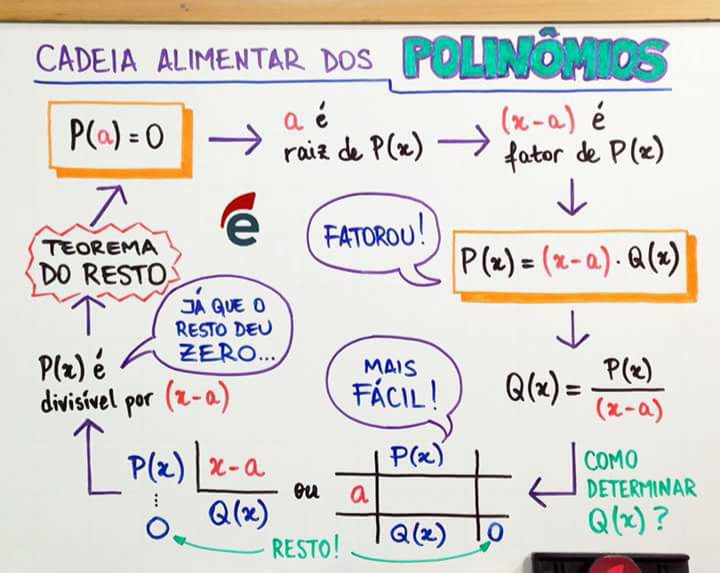 CADEIA ALIMENTAR DOS POLINÔMIOS
P(a) = 0
a é
raiz de P(x)
(x-a) é
fator de P(x)
FATOROU!
P(x) = (x-a) · Q(x)
Q(x) = P(x)
(x-a)
COMO
DETERMINAR
Q(x)?
MAIS
FÁCIL!
P(x)
a
Q(x) 0
ou
P(x) x-a
Q(x)
0
RESTO!
P(x) é
divisível por (x-a)
JÁ QUE O
RESTO DEU
ZERO...
TEOREMA
DO RESTO
e